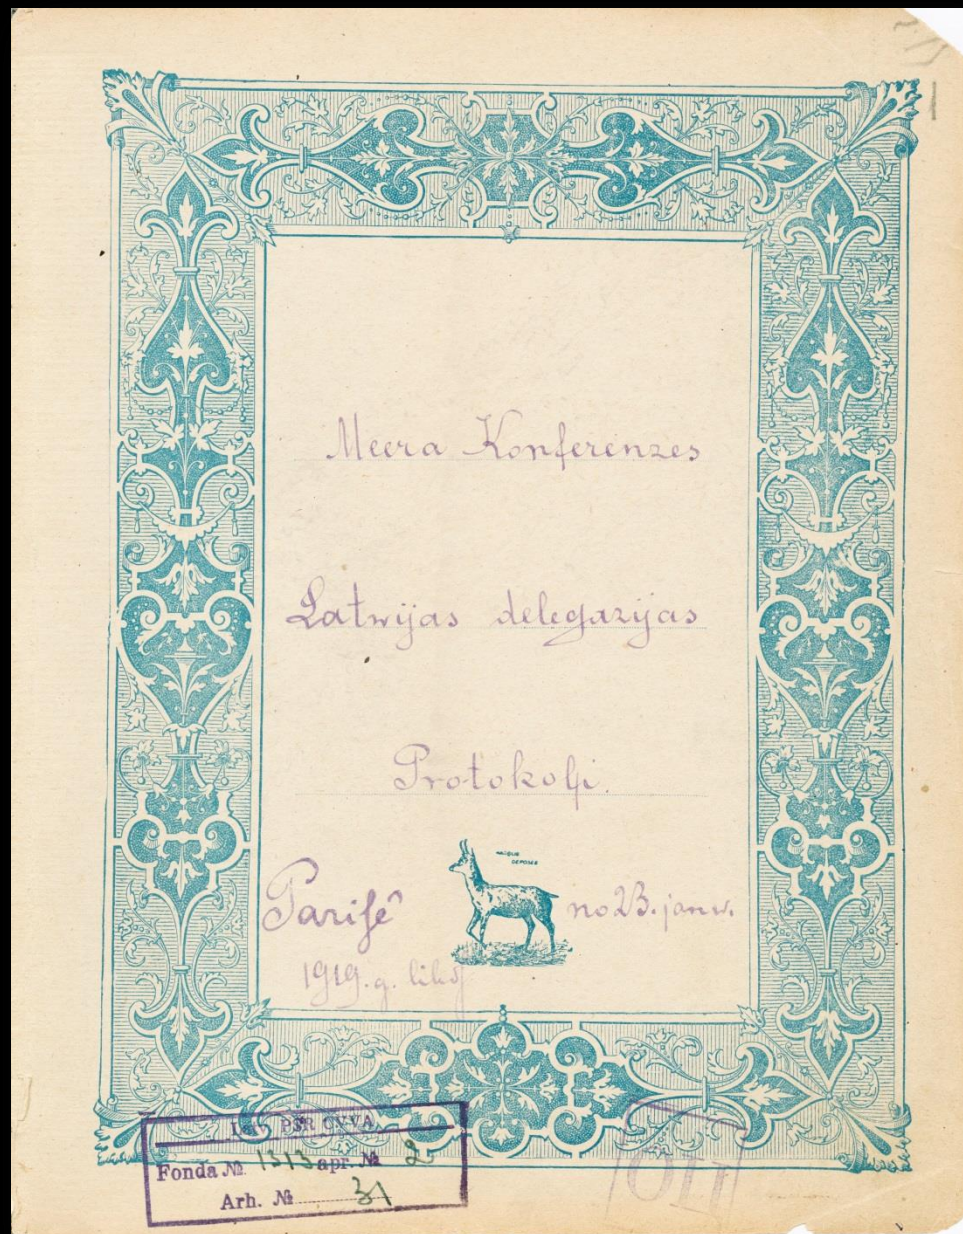 Meera Konferenzes
Latwijas delegazijas
Protokolļi.
MARQUE
DEPOSÉE
Parisê no 23. janw.
1919. g. lihds
Lat. PSR CVVA
Fonda № 1313 apr. № 2
Arh. № 31